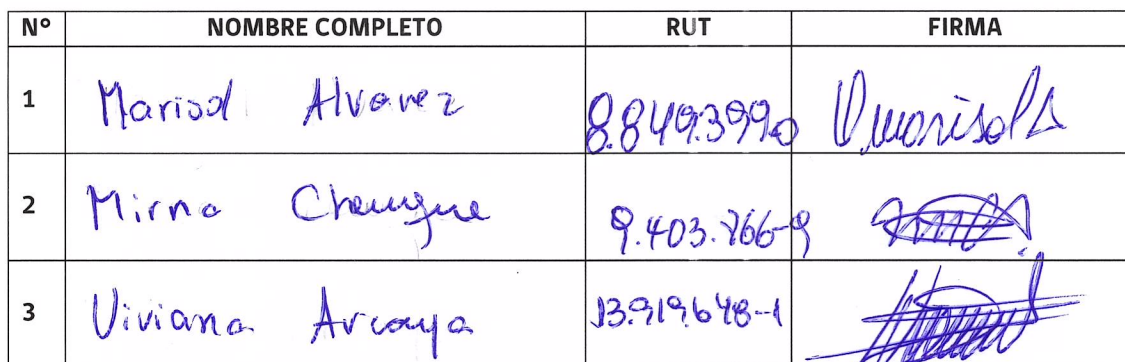 N° NOMBRE COMPLETO RUT FIRMA
1 Marisol Alvarez 8.849.399-0 V.marisol A
2 Mirna 9.403.766-9
3 Viviana Arcaya 13.919.648-1